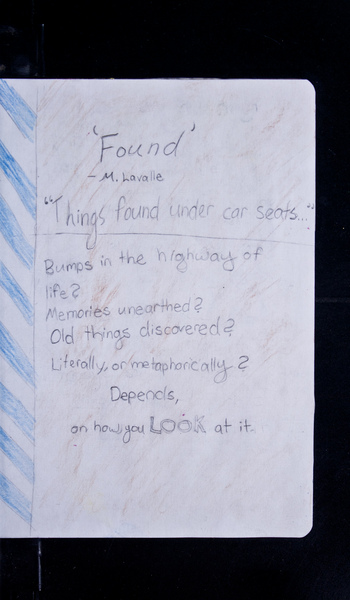 'Found'
- M. Lavalle
"Things found under car seats..."
Bumps in the highway of
life?
Memories unearthed?
Old things discovered?
Literally, or metaphorically?
Depends,
on how you LOOK at it.